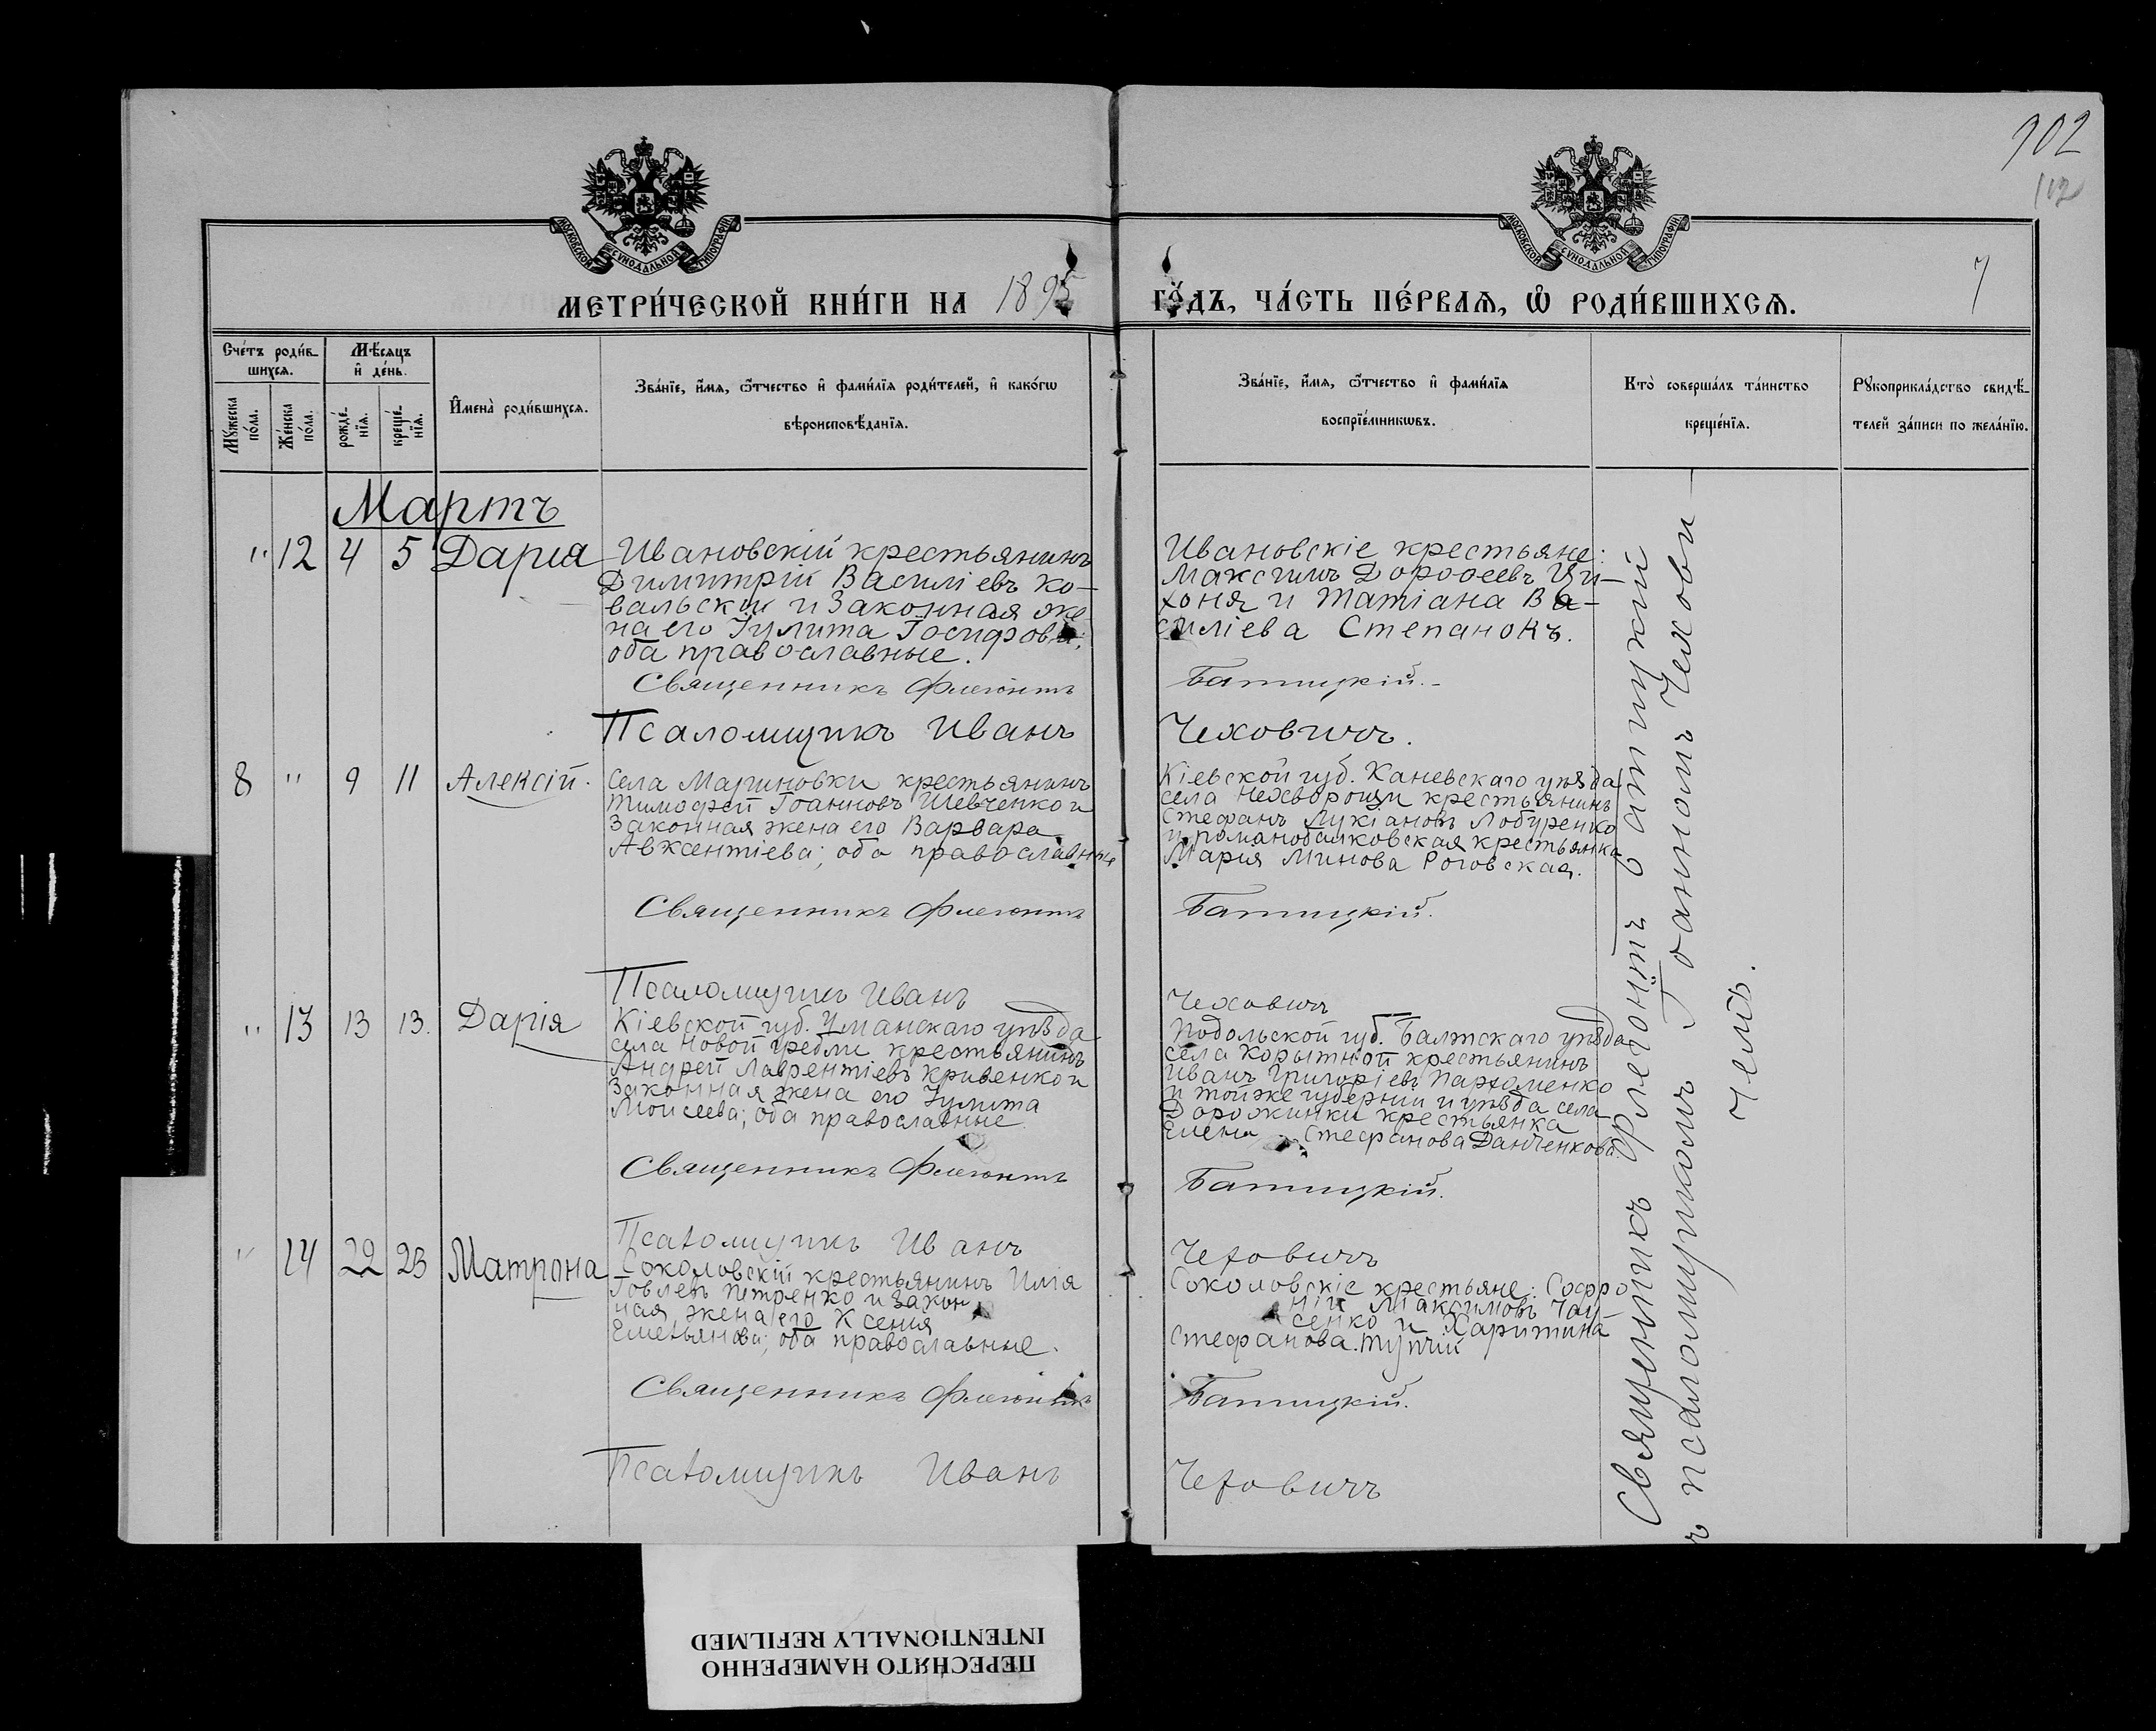 902
112
МОСКОВСКОЙ СѴНОДАЛЬНОЙ ТИПОГРАФІИ
МОСКОВСКОЙ СѴНОДАЛЬНОЙ ТИПОГРАФІИ
7
МЕТРИ́ЧЕСКОЙ КНИ́ГИ НА 1895 ГО́ДЪ, ЧА́СТЬ ПЕ́РВАѦ, Ѡ҆ РОДИ́ВШИХСѦ.
Сче́тъ роди́в-
шихсѧ.
Мѣ́сѧцъ
и҆ де́нь.
Мꙋ́жеска
по́ла.
Же́нска
по́ла.
рожде́-
нїѧ.
креще́-
нїѧ.
И҆мена̀ роди́вшихсѧ.
Зва́нїе, и҆́мѧ, ѻ҆́тчество и҆ фами́лїѧ роди́телей, и҆ како́гѡ
вѣроисповѣ́данїѧ.
Зва́нїе, и҆́мѧ, ѻ҆́тчество и҆ фами́лїѧ
воспрїе́мникѡвъ.
Кто̀ соверша́лъ та́инство
креще́нїѧ.
Рꙋкоприкла́дство свидѣ́-
телей за́писи по жела́нїю.
Мартъ
" 12 4 5 Дарія
Ивановскій крестьянинъ
Димитрій Василіевъ Ко-
вальскій и законная же
на его Іулита Іосифова;
оба православные.
Священникъ Флегонтъ
Псаломщикъ Иванъ
Ивановскіе крестьяне:
Максимъ Дороѳеевъ Ци-
хоня и Татіана Ва-
силіева Степанокъ.
Батицкій.-
Чеховичъ.
8 " 9 11 Алексій.
Села Мариновки крестьянинъ
Тимофей Іоанновъ Шевченко и
законная жена его Варвара
Авксентіева; оба православные
Священникъ Флегонтъ
Псаломщикъ Иванъ
Кіевской губ. Каневскаго уѣзда
села Нехворощи крестьянинъ
Стефанъ Лукіановъ Лобуренко
и романобалковская крестьянка
Марія Минова Роговская.
Батицкій.
Чеховичъ
" 13 13 13. Дарія
Кіевской губ. Уманскаго уѣзда
села Новой гребли крестьянинъ
Андрей Лаврентіевъ Кривенко и
законная жена его Іулита
Моисеева; оба православные
Священникъ Флегонтъ
Псаломщикъ Иванъ
Подольской губ. Балтскаго уѣзда
села Корытной крестьянинъ
Иванъ Григоріевъ Пархоменко
и той же губерніи и уѣзда села
Дорожинки крестьянка
Елена Стефанова Данченкова.
Батицкій.
Чеховичъ
" 14 22 23 Матрона
Соколовскій крестьянинъ Илія
Іовлевъ Петренко и закон
ная жена его Ксенія
Емельянова; оба православные.
Священникъ Флегонтъ
Псаломщикъ Иванъ
Соколовскіе крестьяне: Софро
ній Максимовъ Чау-
сенко и Харитина
Стефанова Тупчій
Батицкій.
Чеховичъ
Священникъ Флегонтъ Батицкій
съ псаломщикомъ Іоанномъ Чехови-
чемъ.
ПЕРЕСНЯТО НАМЕРЕННО
INTENTIONALLY REFILMED